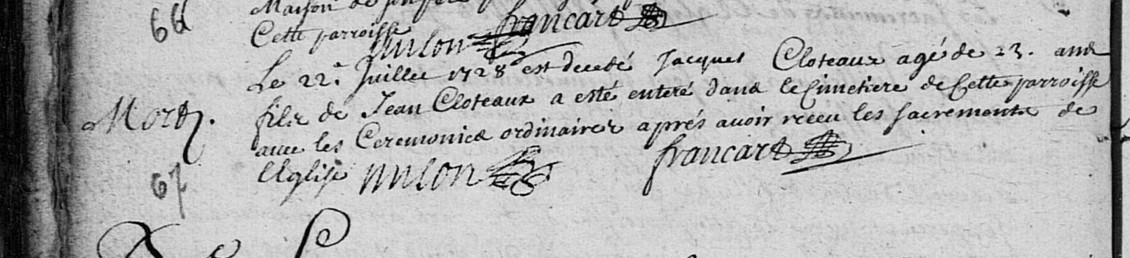 66
Maison de
Cette parroisse
nulon francart
Le 22.e Juillet 1728 est decedé Jacques Cloteaux agé de 23. ans
Mort. fils de Jean Cloteaux a esté enteré dans le Cimetiere de Cette parroisse
avec les Ceremonies ordinaires aprés avoir receu les sacrements de
L'eglise nulon francart
67